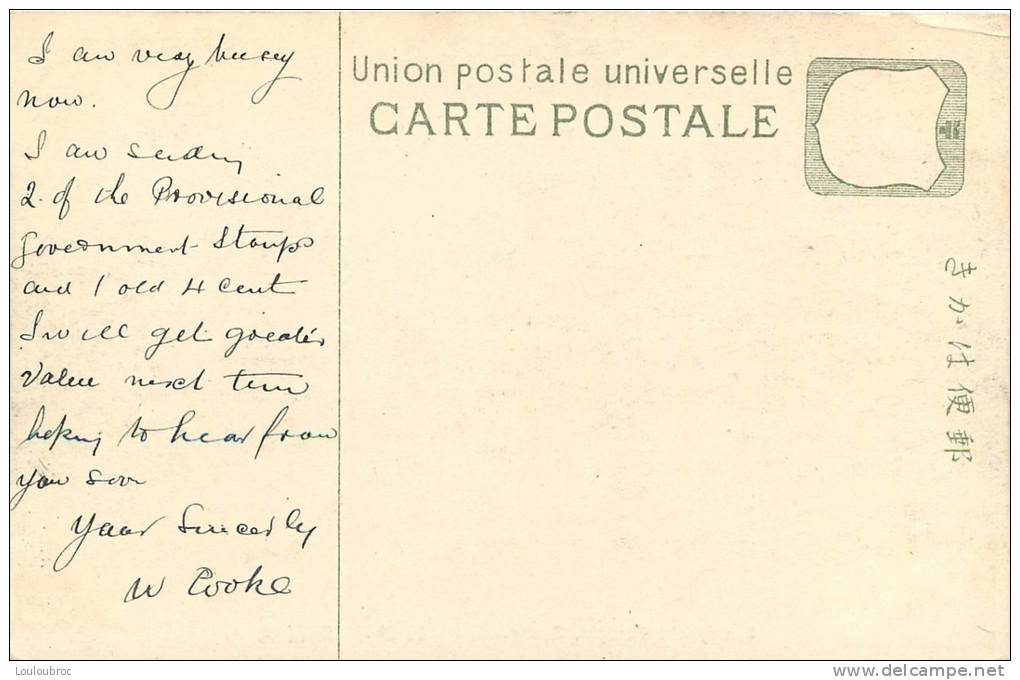 I am very busy
now.
I am sending
2 of the Provisional
Government Stamps
and 1 old 4 cent
I will get greater
Value next time
hoping to hear from
you soon
Your Sincerly
W Cooke
Union postale universelle
CARTE POSTALE
きかは便郵
Louloubroc
www.delcampe.net